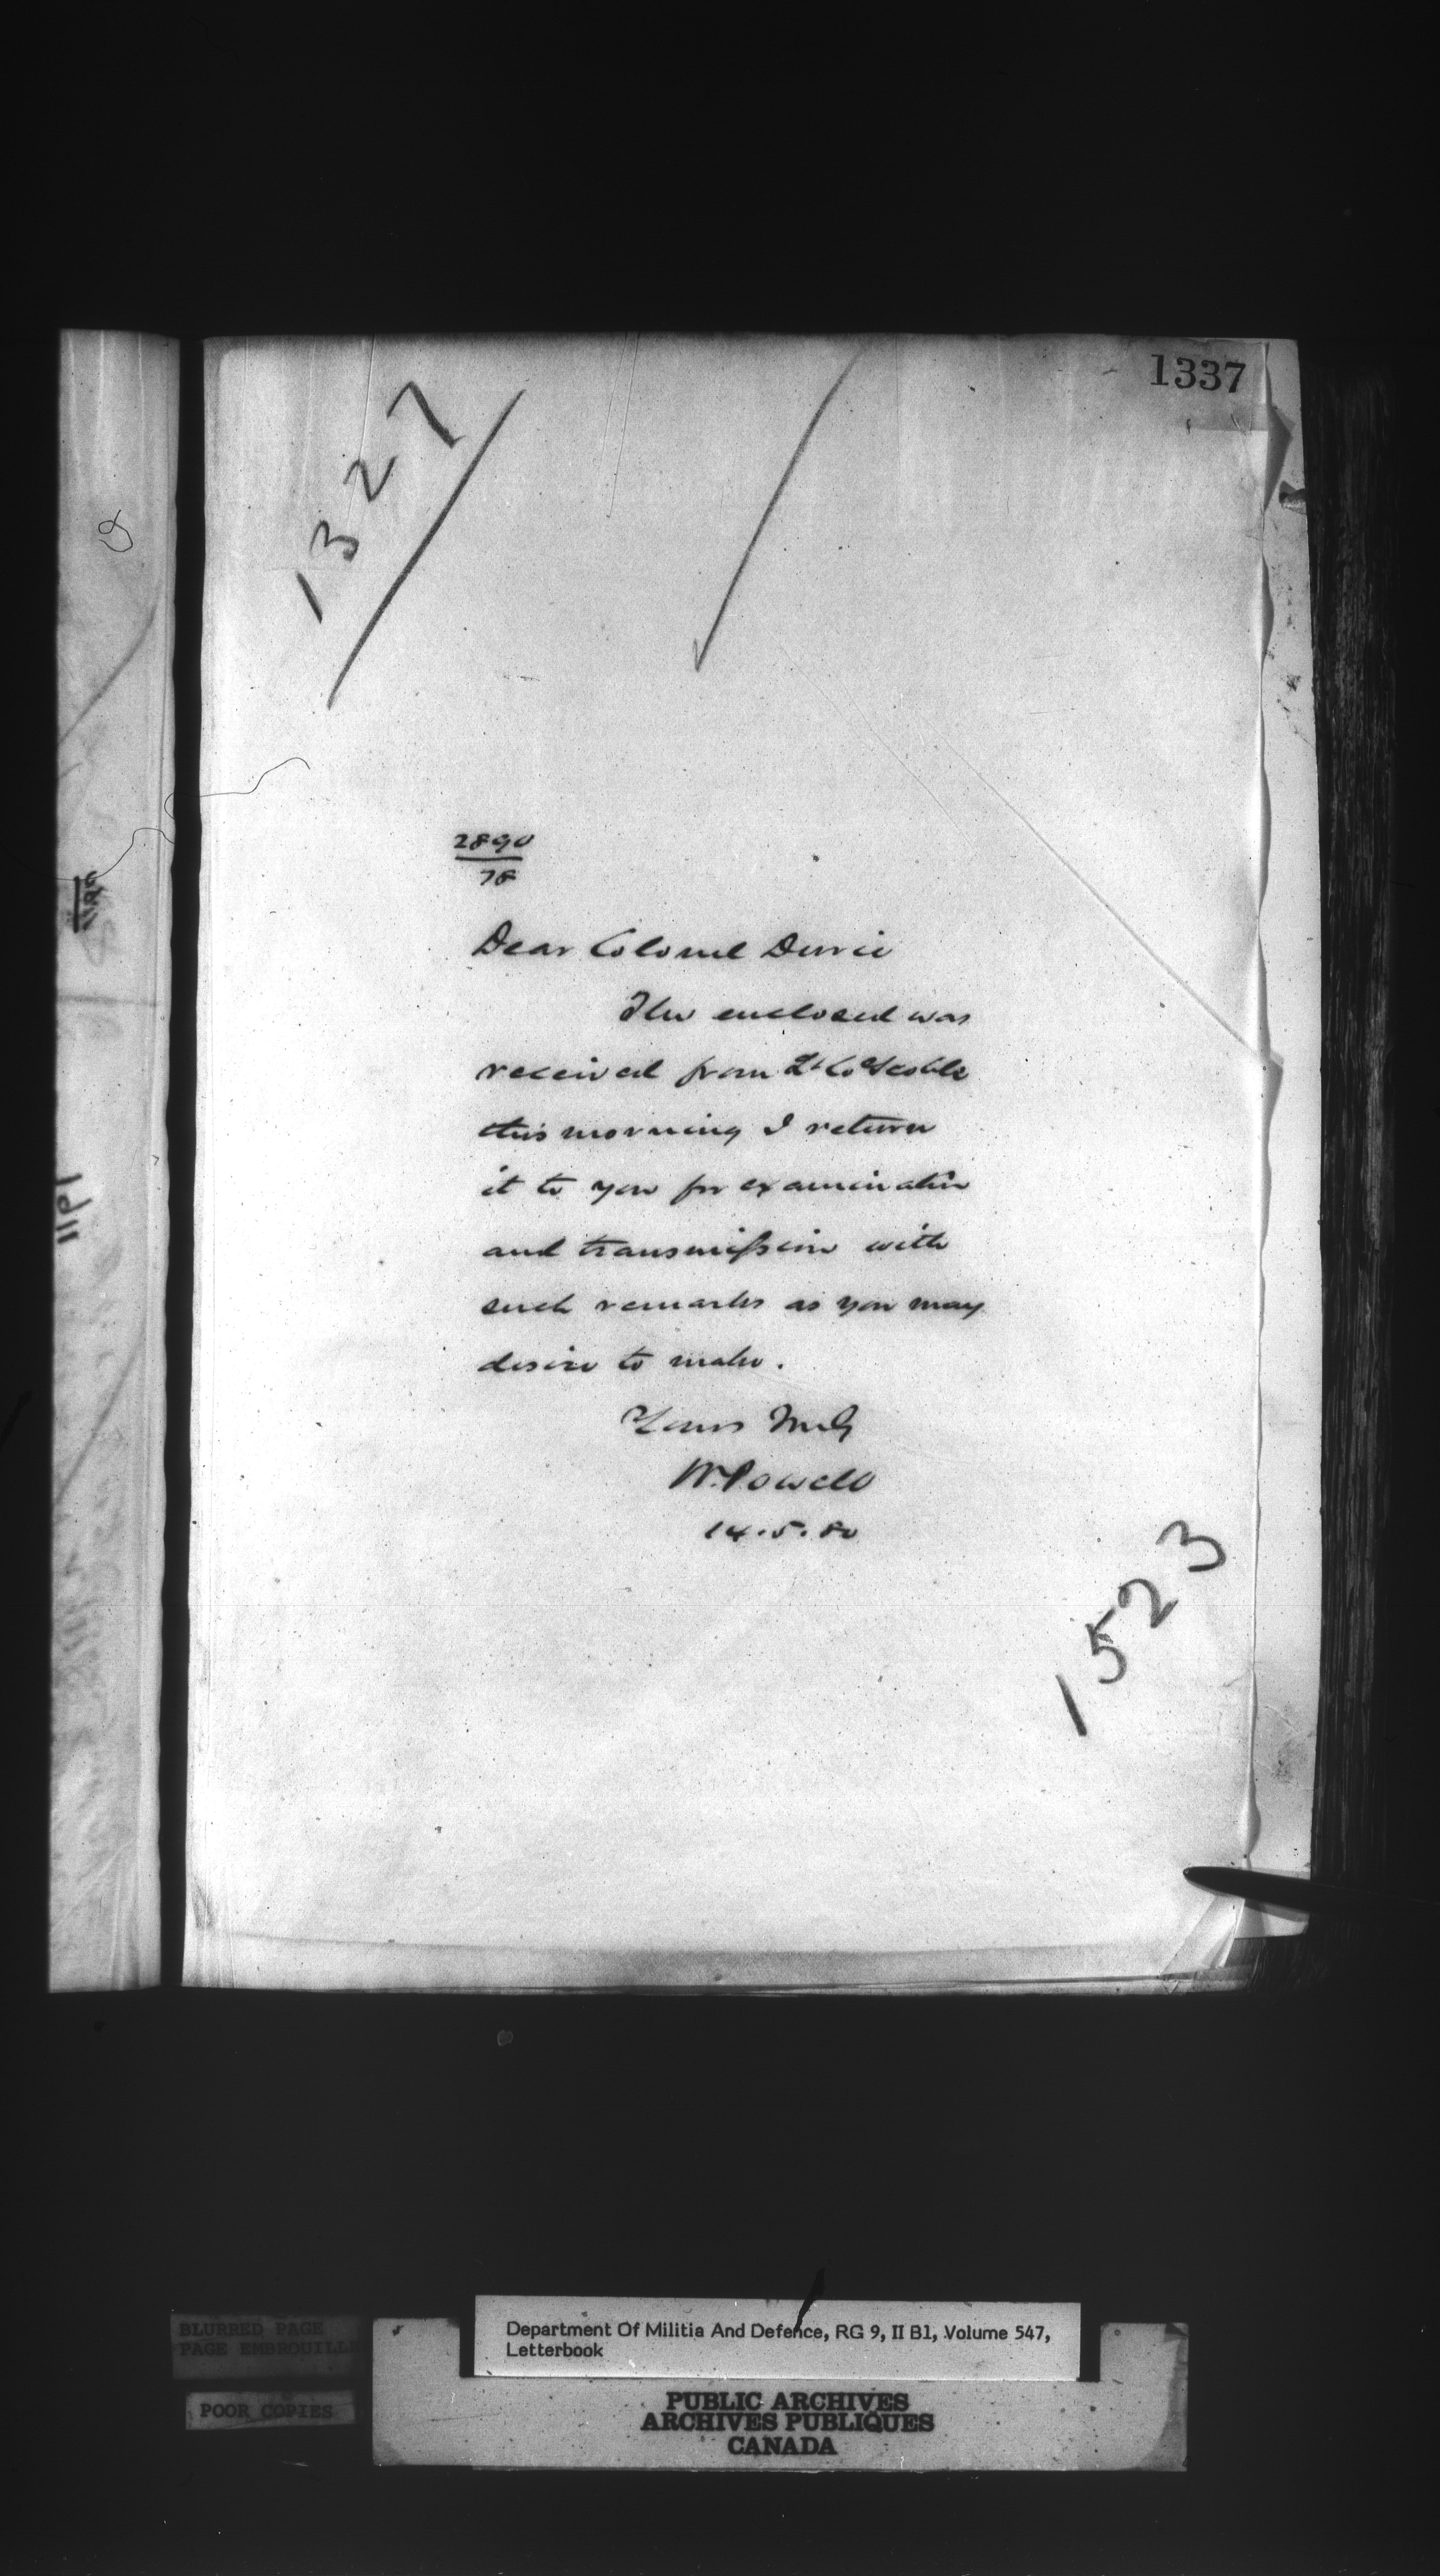 1337
1327
2890
78
Dear Colonel Durie
The enclosed was
received from Lt Co Scoble
this morning I return
it to you for examination
and transmission with
such remarks as you may
desire to make.
Yours truly
W. Powell
14.5.80
1523
BLURRED PAGE
PAGE EMBROUILL
POOR COPIES
Department Of Militia And Defence, RG 9, II B1, Volume 547,
Letterbook
PUBLIC ARCHIVES
ARCHIVES PUBLIQUES
CANADA